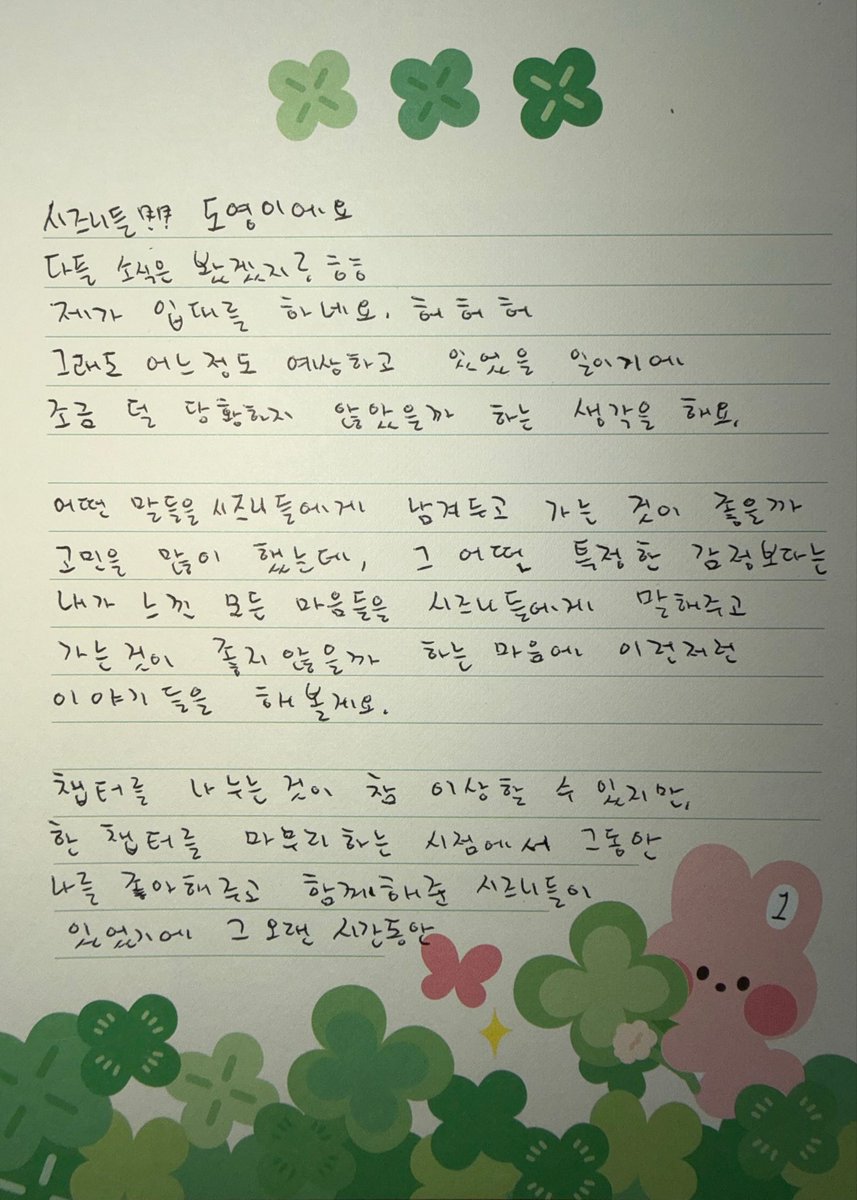 시즈니들!!! 도영이에요
다들 소식은 봤겠지롱 흥흥
제가 입대를 하네요. 허허허
그래도 어느정도 예상하고 있었을 일이기에
조금 덜 당황하지 않았을까 하는 생각을 해요.
어떤 말들을 시즈니들에게 남겨두고 가는 것이 좋을까
고민을 많이 했는데, 그 어떤 특정한 감정보다는
내가 느낀 모든 마음들을 시즈니들에게 말해주고
가는것이 좋지 않을까 하는 마음에 이런저런
이야기들을 해볼게요.
챕터를 나누는것이 참 이상할 수 있지만,
한 챕터를 마무리하는 시점에서 그동안
나를 좋아해주고 함께해준 시즈니들이
있었기에 그 오랜 시간동안
1